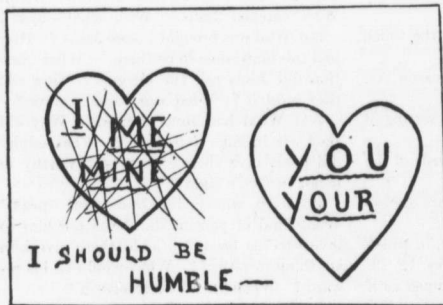 I
ME
MINE
YOU
YOUR
I SHOULD BE
HUMBLE